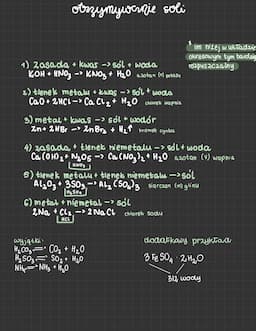 otrzymywanie soli
↑ im niżej w układzie
okresowym tym bardziej
rozpuszczalny
1) zasada + kwas -> sól + woda
KOH + HNO₃ -> KNO₃ + H₂O azotan (V) potasu
2) tlenek metalu + kwas -> sól + woda
CaO + 2HCl -> CaCl₂ + H₂O chlorek wapnia
3) metal + kwas -> sól + wodór
Zn + 2HBr -> ZnBr₂ + H₂↑ bromek cynku
4) zasada + tlenek niemetalu -> sól + woda
Ca(OH)₂ + N₂O₅ -> Ca(NO₃)₂ + H₂O azotan (V) wapnia
HNO₃
5) tlenek metalu + tlenek niemetalu -> sól
Al₂O₃ + 3SO₃ -> Al₂(SO₄)₃ siarczan (VI) glinu
H₂SO₄
6) metal + niemetal -> sól
2Na + Cl₂ -> 2NaCl chlorek sodu
HCl
wyjątki:
H₂CO₃ = CO₂ + H₂O
H₂SO₃ = SO₂ + H₂O
dodatkowy przykład
3 FeSO₄ · 2H₂O